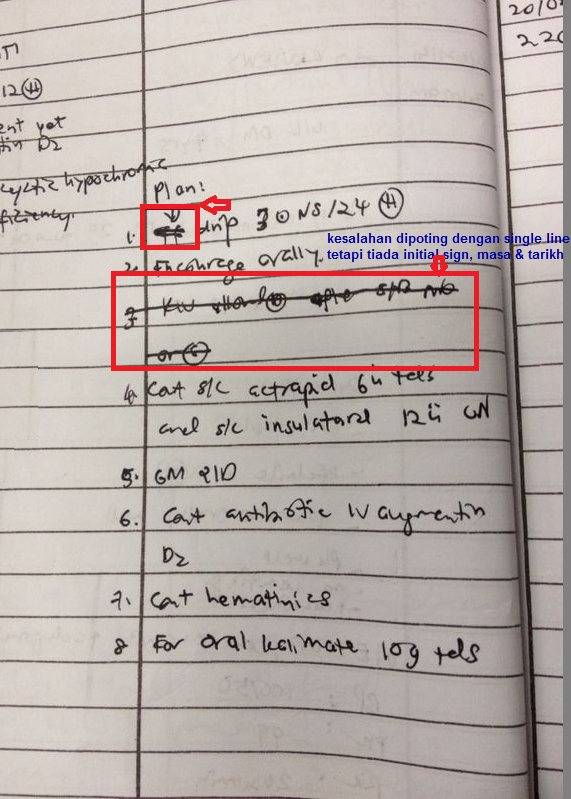 20/0
220
12 (H)
ent yet
D2
hypochromic
Plan:
1. ↓ drip 3 0 NS /24 (H)
kesalahan dipoting dengan single line
tetapi tiada initial sign, masa & tarikh
2. Encourage orally.
3.
4. Cont s/c actrapid 6ü tds
and s/c insulatard 12ü ON
5. GM QID
6. Cont antibiotic IV augmentin
D2
7. Cont hematinics
8 For oral kalimate 10g tds